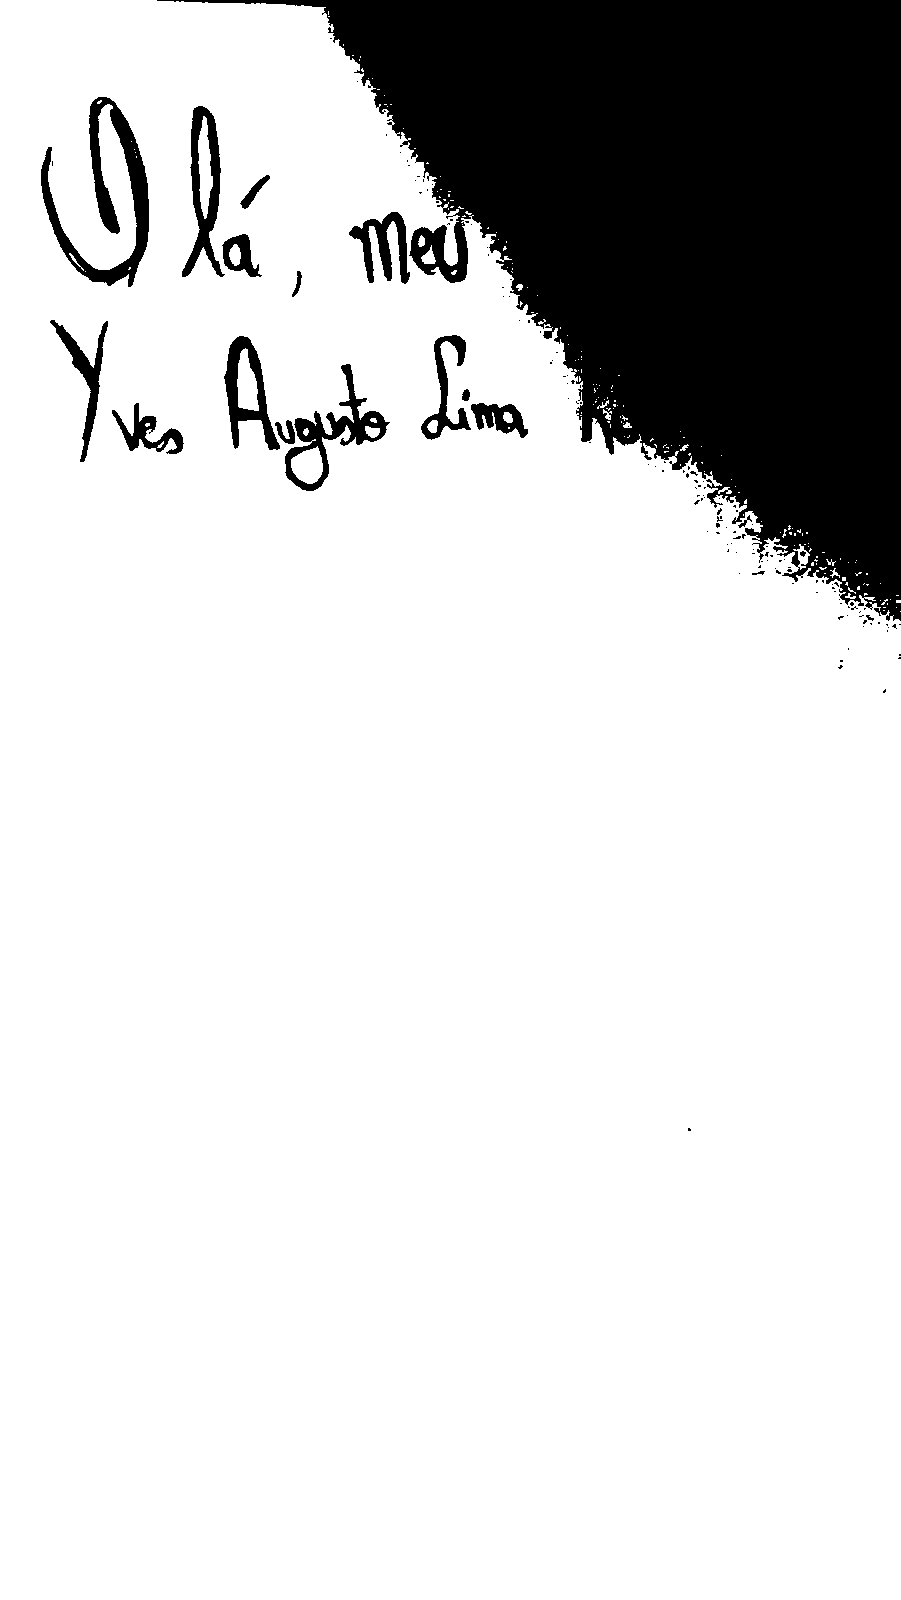 Olá, meu
Yves Augusto Lima